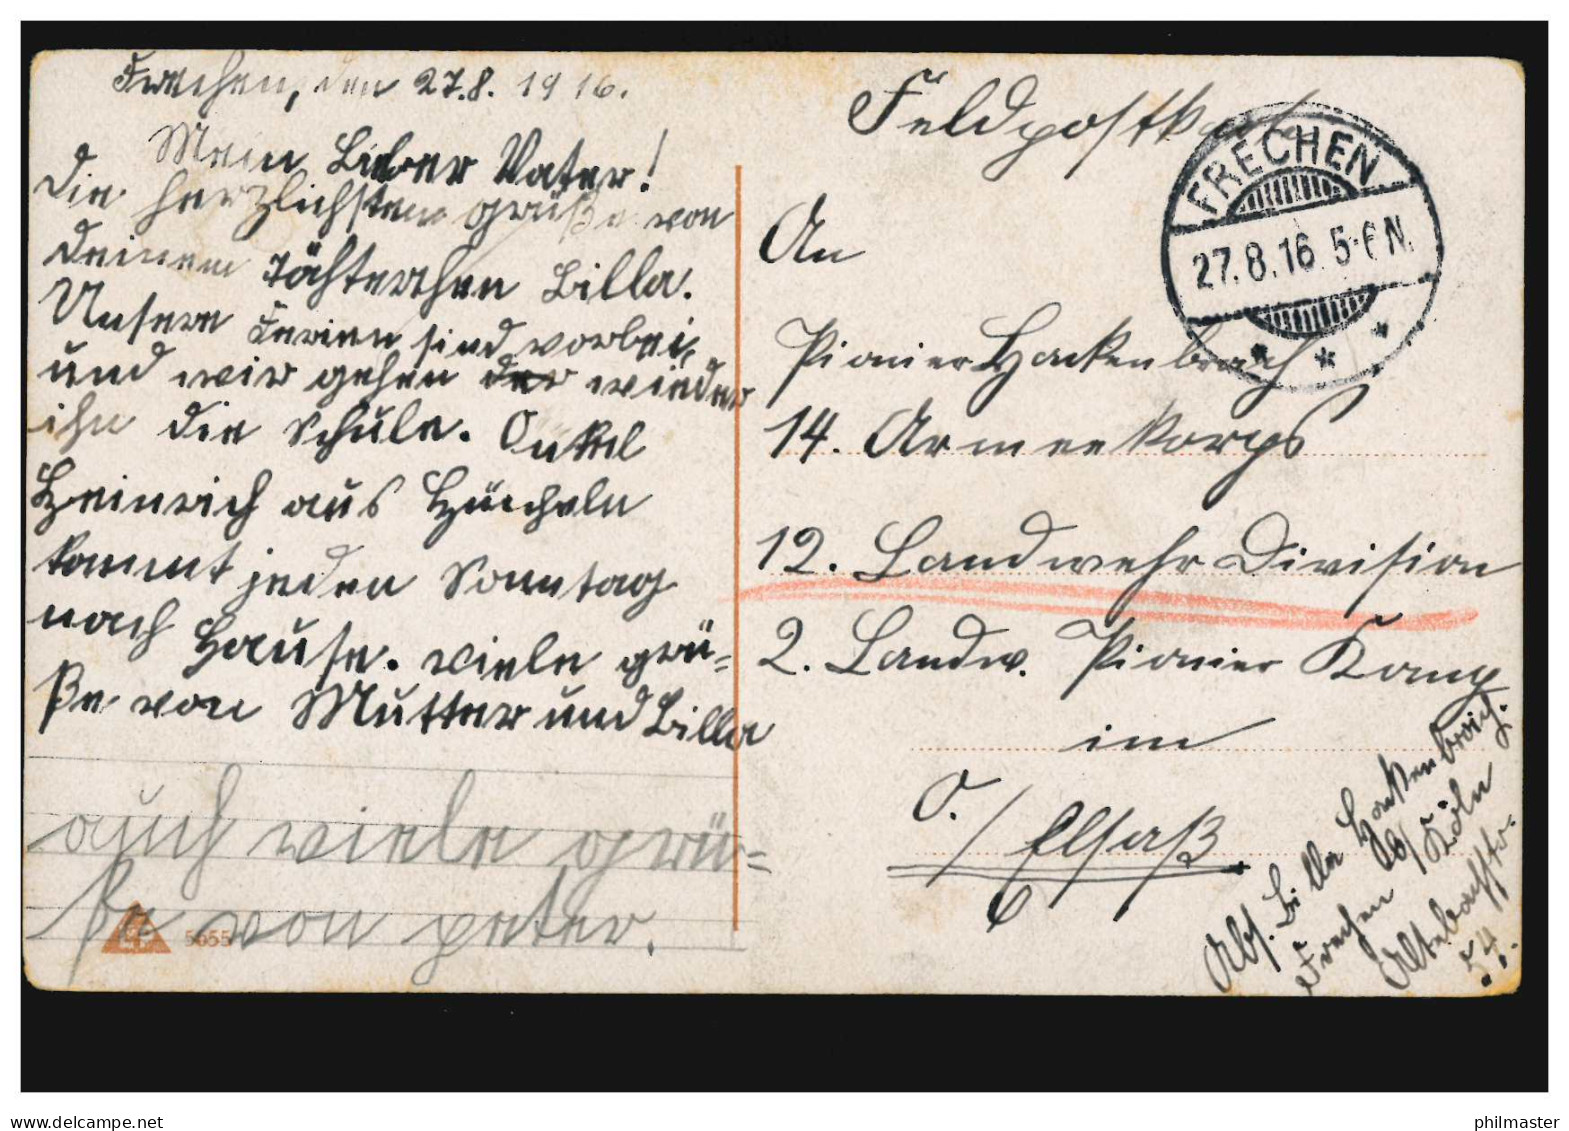 Frechen, den 27.8.1916.
Mein Lieber Vater!
die herzlichsten grüße von
deinem töchterchen Billa.
Unsere Ferien sind vorbei,
und wir gehen der wieder
ihn die Schule. Onkel
Heinrich aus Hücheln
kommt jeden Sonntag
nach Hause. viele grü=
ße von Mutter und Billa
auch viele grü=
ße von peter.
5655
Feldpostkarte
FRECHEN
27.8.16 5-6 N.
An
Pionier Hackenbroich
14. Armeekorps
12. Landwehr Division
2. Landw. Pionier Komp
im
O./Elsaß
Abs. Billa Hackenbroich.
Frechen b/Köln
Altebachstr.
54.
philmaster
www.delcampe.net